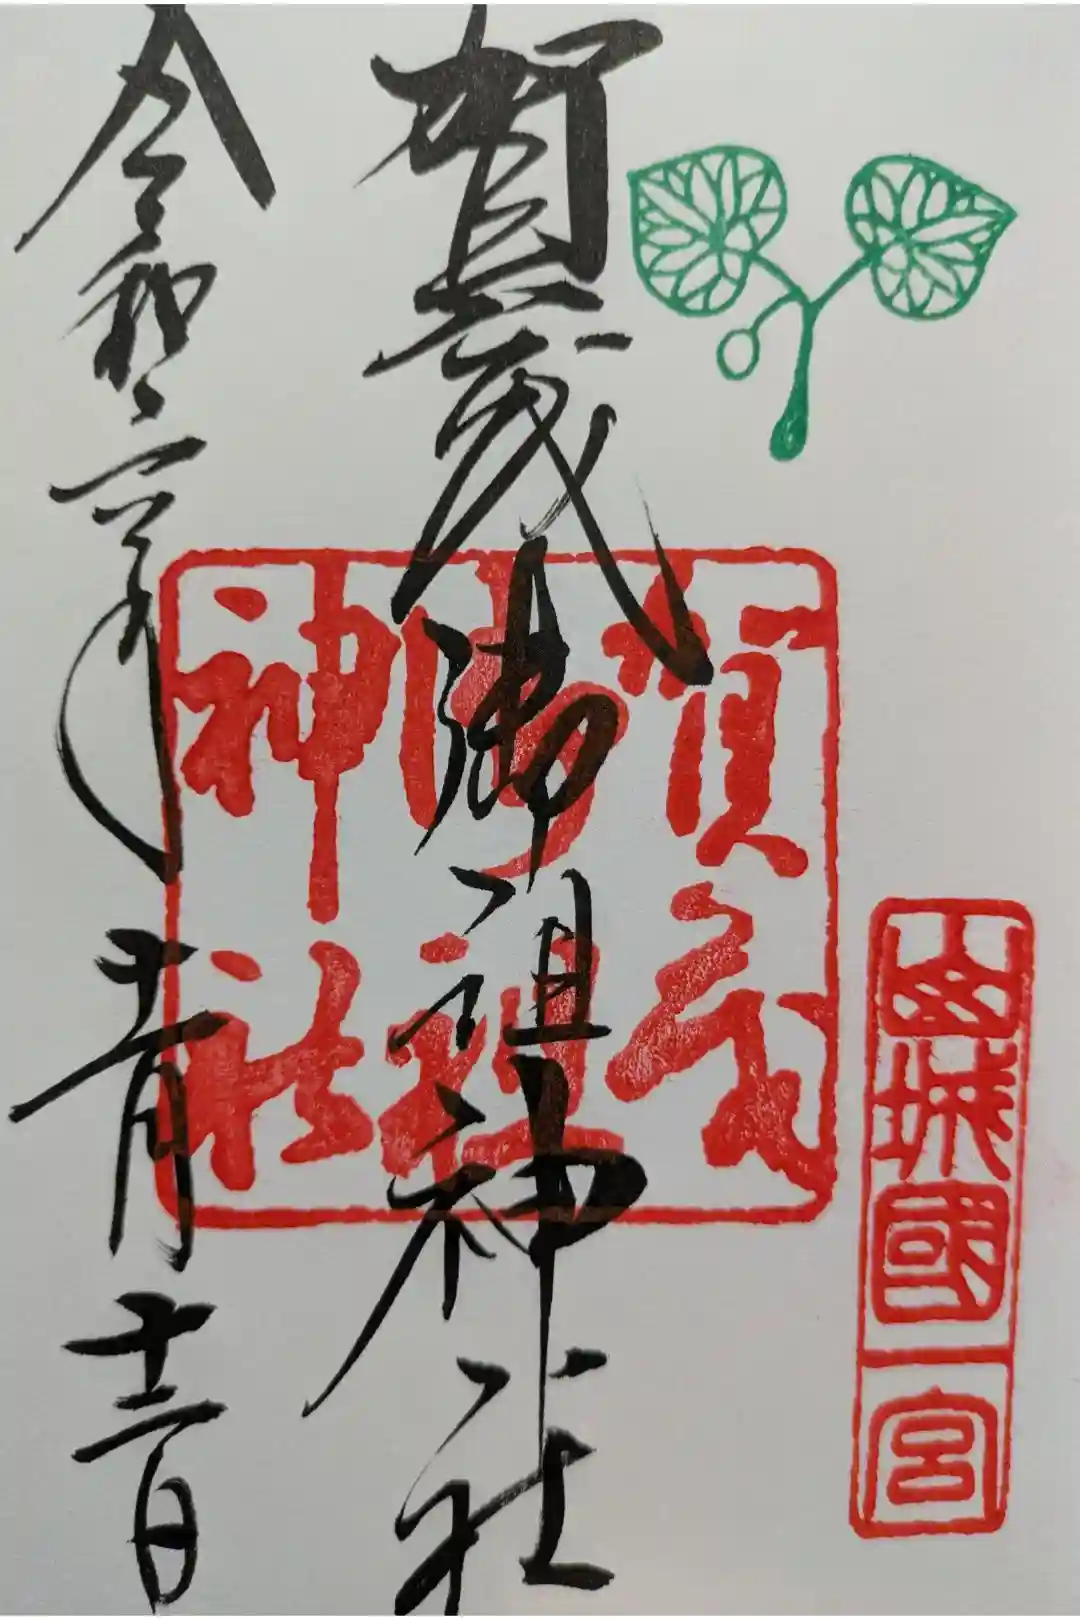 山城國一宮
賀茂御祖神社
賀茂
御祖
神社
令和二年十一月日